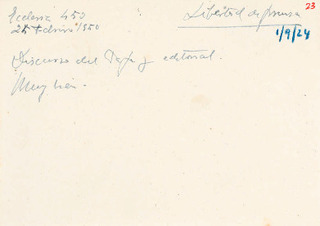 Ecclesia 453
25 Febrero 1950
Libertad de prensa
23
1/9/24
Discurso del Papa y editorial.
Muy bien.